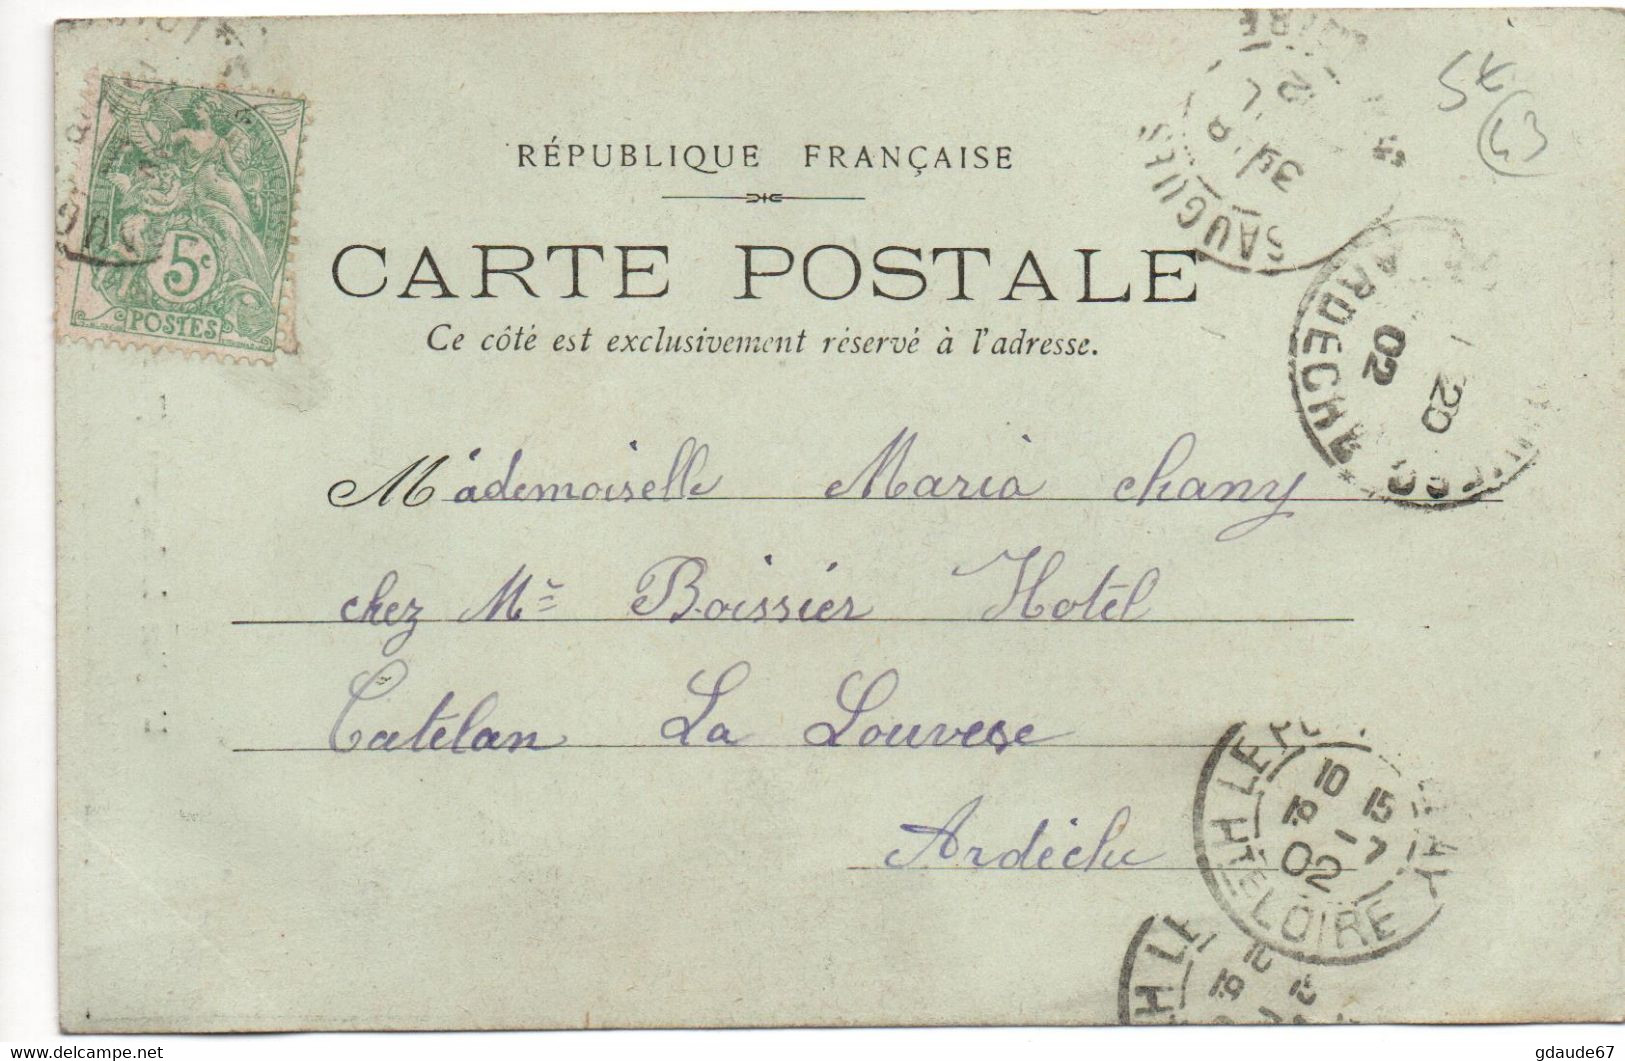 RÉPUBLIQUE FRANÇAISE
CARTE POSTALE
Ce côté est exclusivement réservé à l'adresse.
5c
POSTES
SAUGUES
43
ARDECHE
20
02
Mademoiselle Maria Chany
chez Me Boissier Hotel
Catelan La Louvesc
Ardèche
LE PUY
10 15
19 -7
02
HTE LOIRE
gdaude67